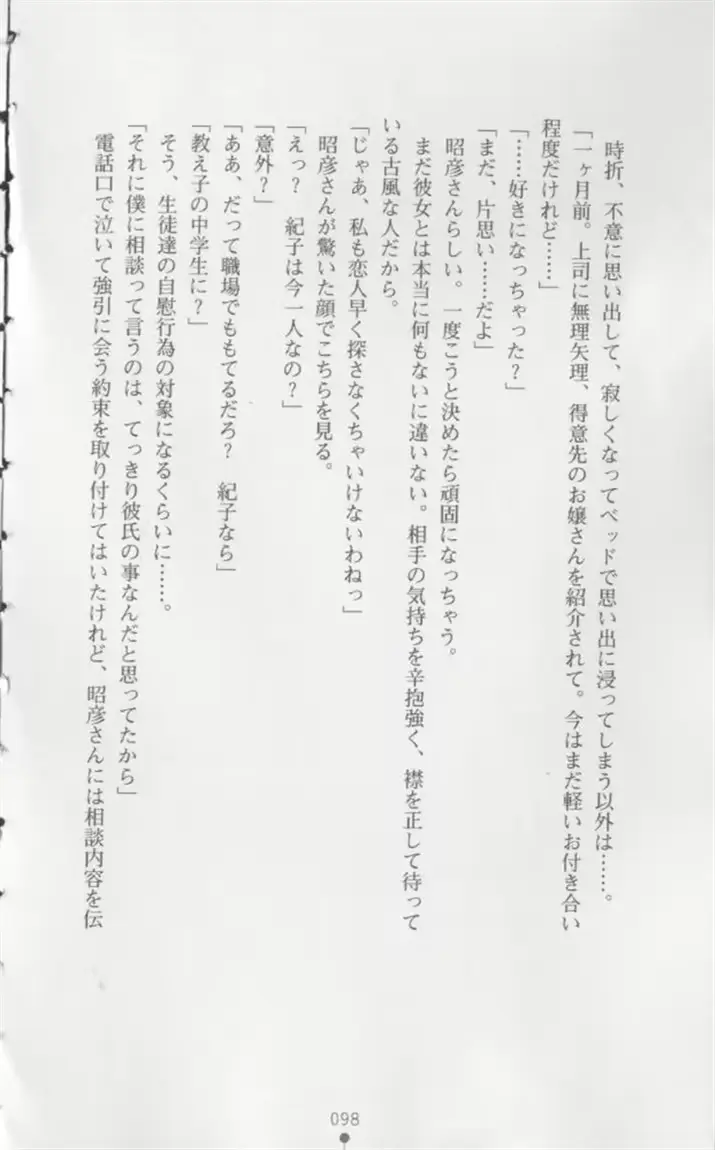 時折、不意に思い出して、寂しくなってベッドで思い出に浸ってしまう以外は……。
「一ヶ月前。上司に無理矢理、得意先のお嬢さんを紹介されて。今はまだ軽いお付き合い
程度だけれど……」
「……好きになっちゃった?」
「まだ、片思い……だよ」
昭彦さんらしい。一度こうと決めたら頑固になっちゃう。
まだ彼女とは本当に何もないに違いない。相手の気持ちを辛抱強く、襟を正して待って
いる古風な人だから。
「じゃあ、私も恋人早く探さなくちゃいけないわねっ」
昭彦さんが驚いた顔でこちらを見る。
「えっ? 紀子は今一人なの?」
「意外?」
「ああ、だって職場でももてるだろ? 紀子なら」
「教え子の中学生に?」
そう、生徒達の自慰行為の対象になるくらいに……。
「それに僕に相談って言うのは、てっきり彼氏の事なんだと思ってたから」
電話口で泣いて強引に会う約束を取り付けてはいたけれど、昭彦さんには相談内容を伝
098